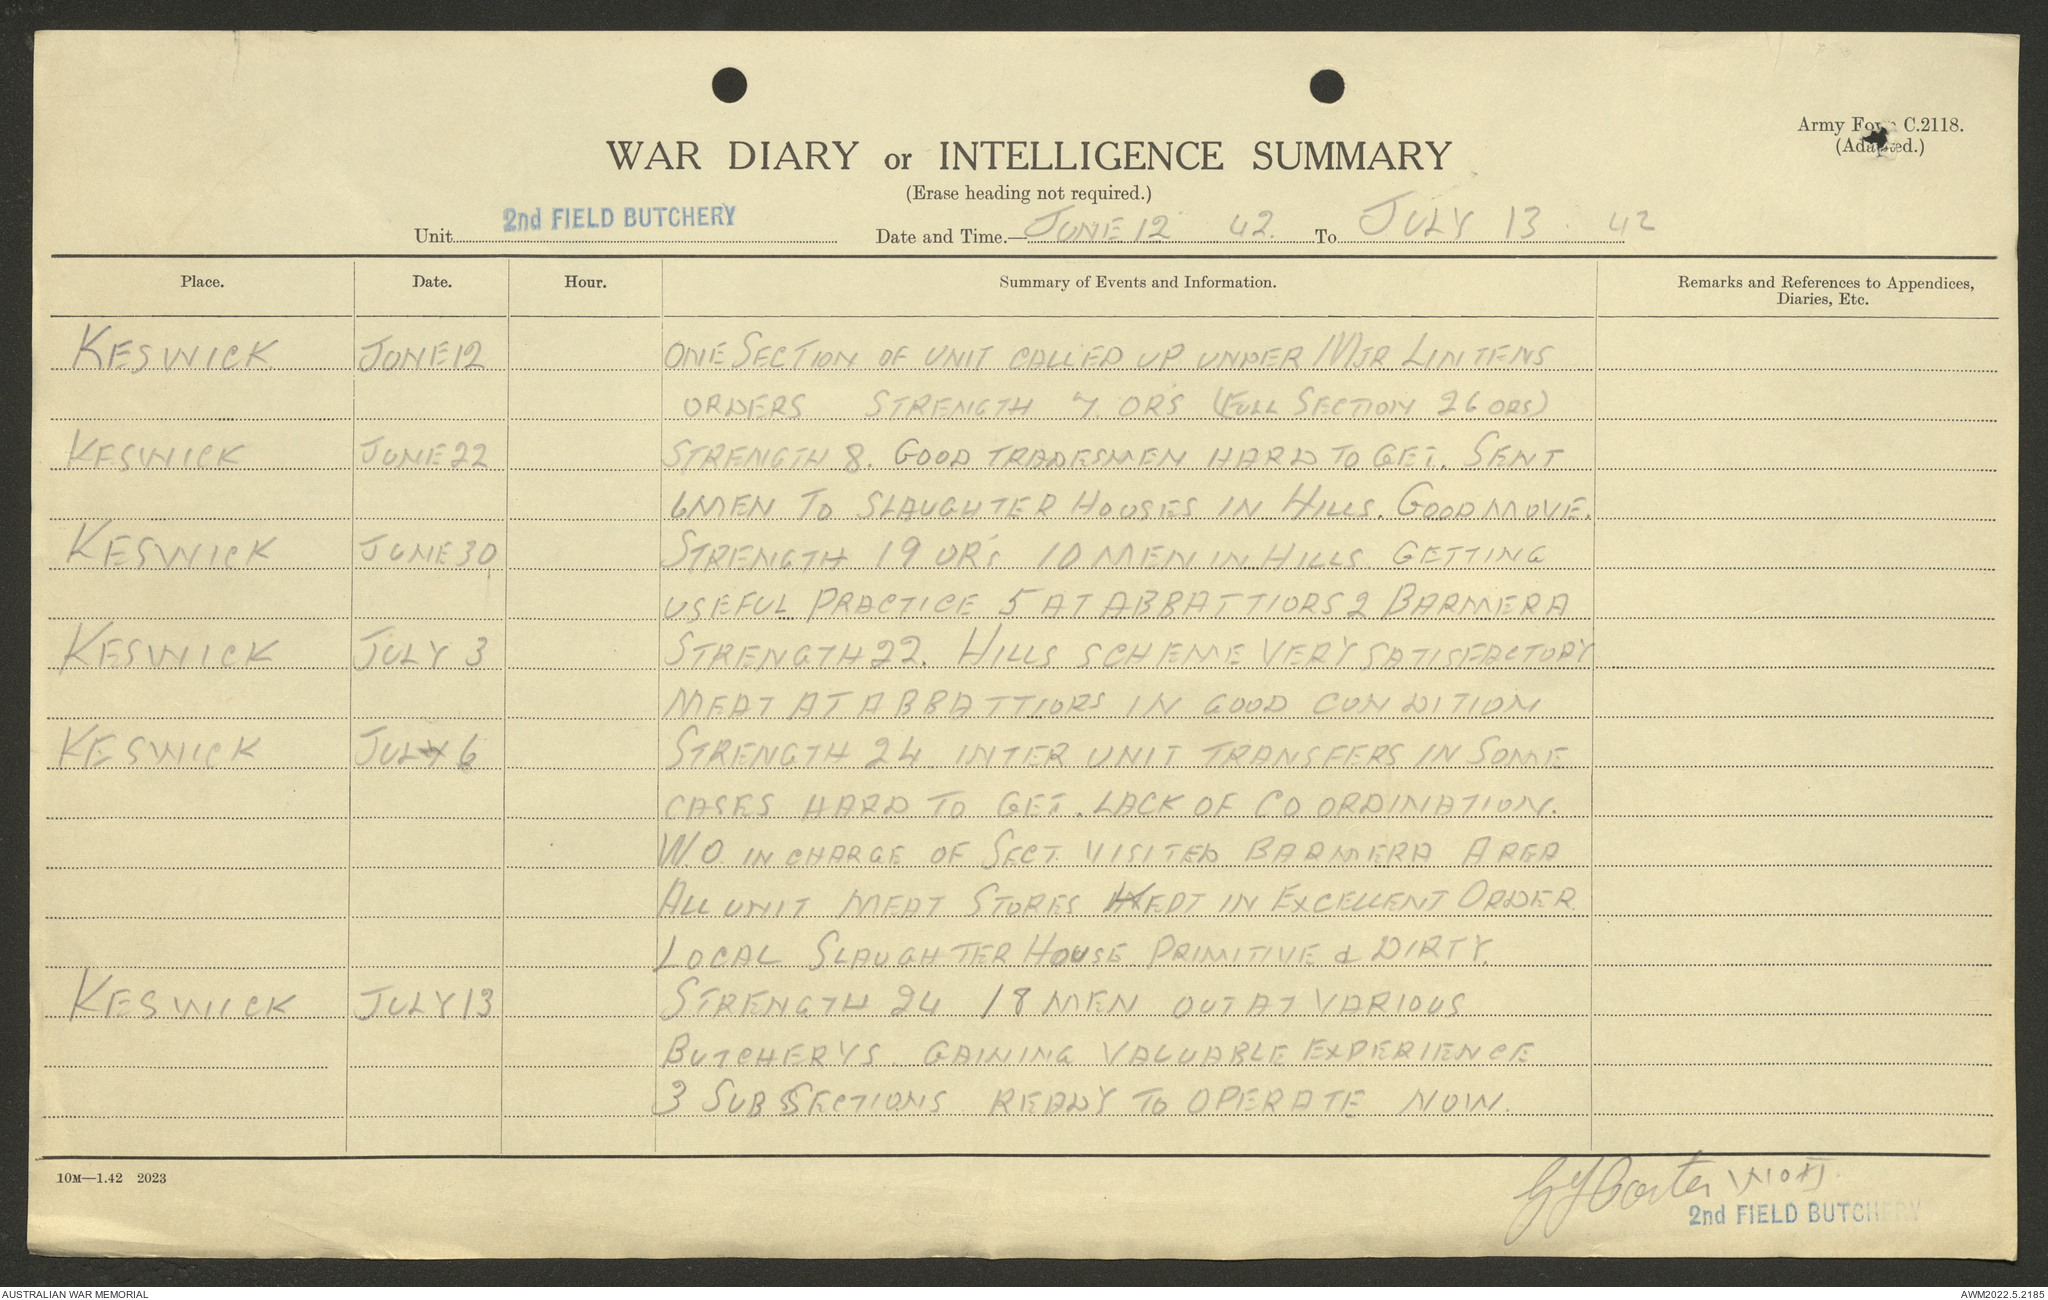 Army Form C.2118.
(Adapted.)
WAR DIARY or INTELLIGENCE SUMMARY
(Erase heading not required.)
Unit 2nd FIELD BUTCHERY Date and Time.— JUNE 12 42. To JULY 13 42
Place. Date. Hour. Summary of Events and Information. Remarks and References to Appendices,
Diaries, Etc.
KESWICK JUNE 12 ONE SECTION OF UNIT CALLED UP UNDER MJR LINTENS
ORDERS STRENGTH 7 ORS (FULL SECTION 26 ORS)
KESWICK JUNE 22 STRENGTH 8. GOOD TRADESMEN HARD TO GET. SENT
6 MEN TO SLAUGHTER HOUSES IN HILLS. GOOD MOVE.
KESWICK JUNE 30 STRENGTH 19 OR'S 10 MEN IN HILLS. GETTING
USEFUL PRACTICE 5 AT ABBATTIORS 2 BARMERA
KESWICK JULY 3 STRENGTH 22. HILLS SCHEME VERY SATISFACTORY
MEAT AT ABBATTIORS IN GOOD CONDITION
KESWICK JULY 6 STRENGTH 24 INTER UNIT TRANSFERS IN SOME
CASES HARD TO GET. LACK OF CO ORDINATION.
W.O IN CHARGE OF SECT. VISITED BARMERA AREA
ALL UNIT MEAT STORES KEPT IN EXCELLENT ORDER
LOCAL SLAUGHTER HOUSE PRIMITIVE & DIRTY.
KESWICK JULY 13 STRENGTH 24 18 MEN OUT AT VARIOUS
BUTCHERYS. GAINING VALUABLE EXPERIENCE
3 SUB SECTIONS READY TO OPERATE NOW.
10M—1.42 2023
Carter WO II
2nd FIELD BUTCHERY
AUSTRALIAN WAR MEMORIAL AWM2022.5.2185